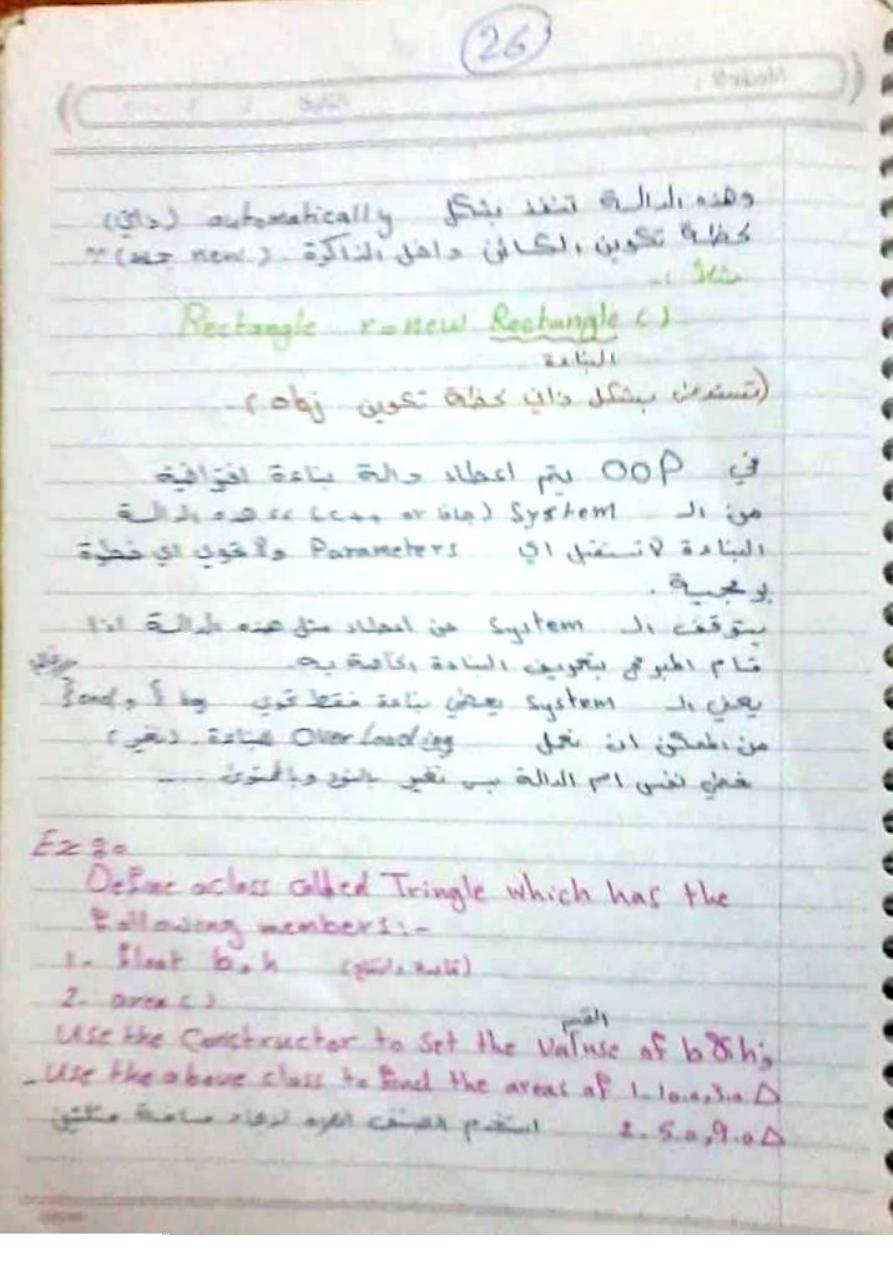 26
وهذه الدالة تنفذ بشكل automatically (ذاتي)
لحظة تكوين الكائن داخل الذاكرة ( new جديد)
مثلاً :-
Rectangle r=new Rectangle ( )
البناءة
( بشكل ذاتي لحظة تكوين obj ).
في OOP يتم اعطاء دالة بناءة افتراضية
من الـ System (جافا or c++) هذه الدالة
البناءة لا تستقبل اي Parameters ولا تحوي اي خطوة
برمجية .
يتوقف الـ System عن اعطاء مثل هذه الدالة اذا
قام المبرمج بتعريف البناءة الخاصة به
يعني الـ System يعطي بناءة فقط تحوي
من الممكن ان نعمل Over Loading للبناءة (تغير)
نفس اسم الدالة بس نغير بالنوع وبالمحتوى ....
Ex :-
Define aclass called Tringle which has the
following members :-
1. float b,h (قاعدة وارتفاع)
2. area ( )
القيم
Use the Constructor to set the valuse of b & h;
- Use the above class to find the areas of 1- 10.0, 3.0 Δ
استخدم الصنف لايجاد مساحة مثلثين 2. 5.0, 9.0 Δ